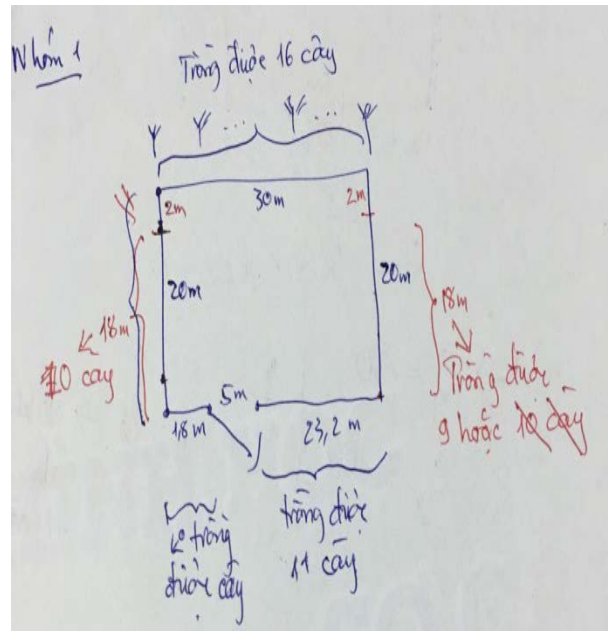 Nhóm 1
Trồng được 16 cây
... ...
2m
30m
2m
20m
20m
18m
18m
10 cây
Trồng được
9 hoặc 10 cây
5m
1,8m
23,2 m
trồng được
11 cây
trồng
được cây